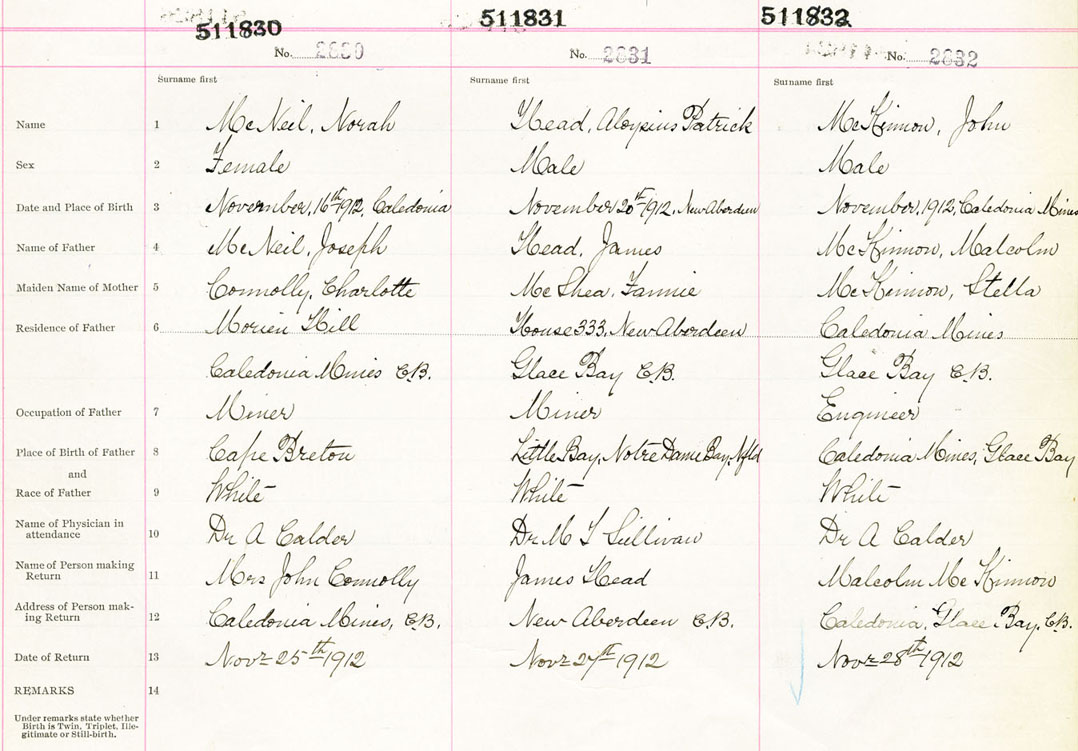 511830 511831 511832
No. 2830 No. 2831 No. 2832
Surname first Surname first Surname first
Name 1 McNeil, Norah Head, Aloysius Patrick McKinnon, John
Sex 2 Female Male Male
Date and Place of Birth 3 November, 16th 1912, Caledonia November 20th 1912, New Aberdeen November, 1912, Caledonia Mines
Name of Father 4 McNeil, Joseph Head, James McKinnon, Malcolm
Maiden Name of Mother 5 Connolly, Charlotte McShea, Fannie McKinnon, Stella
Residence of Father 6 Morien Hill House 333, New Aberdeen Caledonia Mines
Caledonia Mines C.B. Glace Bay C.B. Glace Bay C.B.
Occupation of Father 7 Miner Miner Engineer
Place of Birth of Father 8 Cape Breton Little Bay, Notre Dame Bay, Nfld Caledonia Mines, Glace Bay
and
Race of Father 9 White White White
Name of Physician in attendance 10 Dr A Calder Dr M T Sullivan Dr A Calder
Name of Person making Return 11 Mrs John Connolly James Head Malcolm McKinnon
Address of Person mak-
ing Return 12 Caledonia Mines, C.B. New Aberdeen C.B. Caledonia, Glace Bay, C.B.
Date of Return 13 Novr 25th 1912 Novr 27th 1912 Novr 28th 1912
REMARKS 14
Under remarks state whether
Birth is Twin, Triplet, Ille-
gitimate or Still-birth.